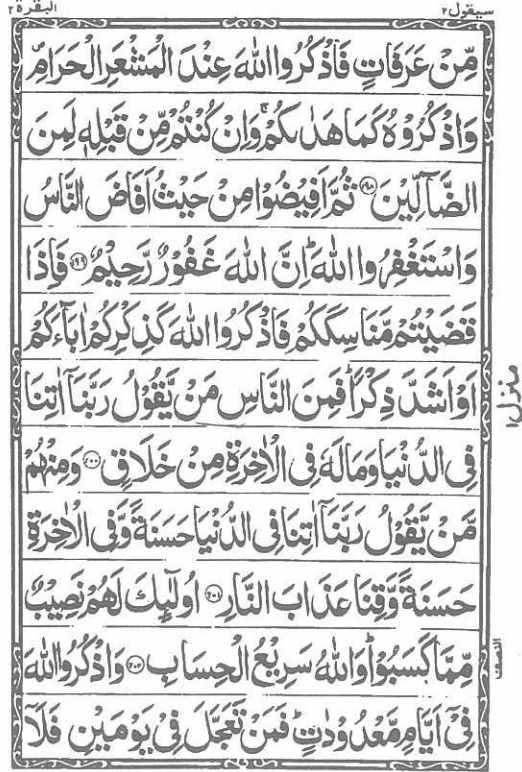 سيقول ٢
البقرة ٢
مِّنْ عَرَفَاتٍ فَاذْكُرُوا اللّٰهَ عِنْدَ الْمَشْعَرِ الْحَرَامِ۪
وَاذْكُرُوْهُ كَمَا هَدٰىكُمْ ۚ وَاِنْ كُنْتُمْ مِّنْ قَبْلِهٖ لَمِنَ
الضَّآلِّيْنَ ﴿١٩٨﴾ ثُمَّ اَفِيْضُوْا مِنْ حَيْثُ اَفَاضَ النَّاسُ
وَاسْتَغْفِرُوا اللّٰهَ ؕ اِنَّ اللّٰهَ غَفُوْرٌ رَّحِيْمٌ ﴿١٩٩﴾ فَاِذَا
قَضَيْتُمْ مَّنَاسِكَكُمْ فَاذْكُرُوا اللّٰهَ كَذِكْرِكُمْ اٰبَآءَكُمْ
اَوْ اَشَدَّ ذِكْرًا ؕ فَمِنَ النَّاسِ مَنْ يَّقُوْلُ رَبَّنَاۤ اٰتِنَا
فِى الدُّنْيَا وَمَا لَهٗ فِى الْاٰخِرَةِ مِنْ خَلَاقٍ ﴿٢٠٠﴾ وَمِنْهُمْ
مَّنْ يَّقُوْلُ رَبَّنَاۤ اٰتِنَا فِى الدُّنْيَا حَسَنَةً وَّفِى الْاٰخِرَةِ
حَسَنَةً وَّقِنَا عَذَابَ النَّارِ ﴿٢٠١﴾ اُولٰٓئِكَ لَهُمْ نَصِيْبٌ
مِّمَّا كَسَبُوْا ؕ وَاللّٰهُ سَرِيْعُ الْحِسَابِ ﴿٢٠٢﴾ وَاذْكُرُوا اللّٰهَ
فِىْۤ اَيَّامٍ مَّعْدُوْدٰتٍ ؕ فَمَنْ تَعَجَّلَ فِىْ يَوْمَيْنِ فَلَاۤ
منزل ١
النصف